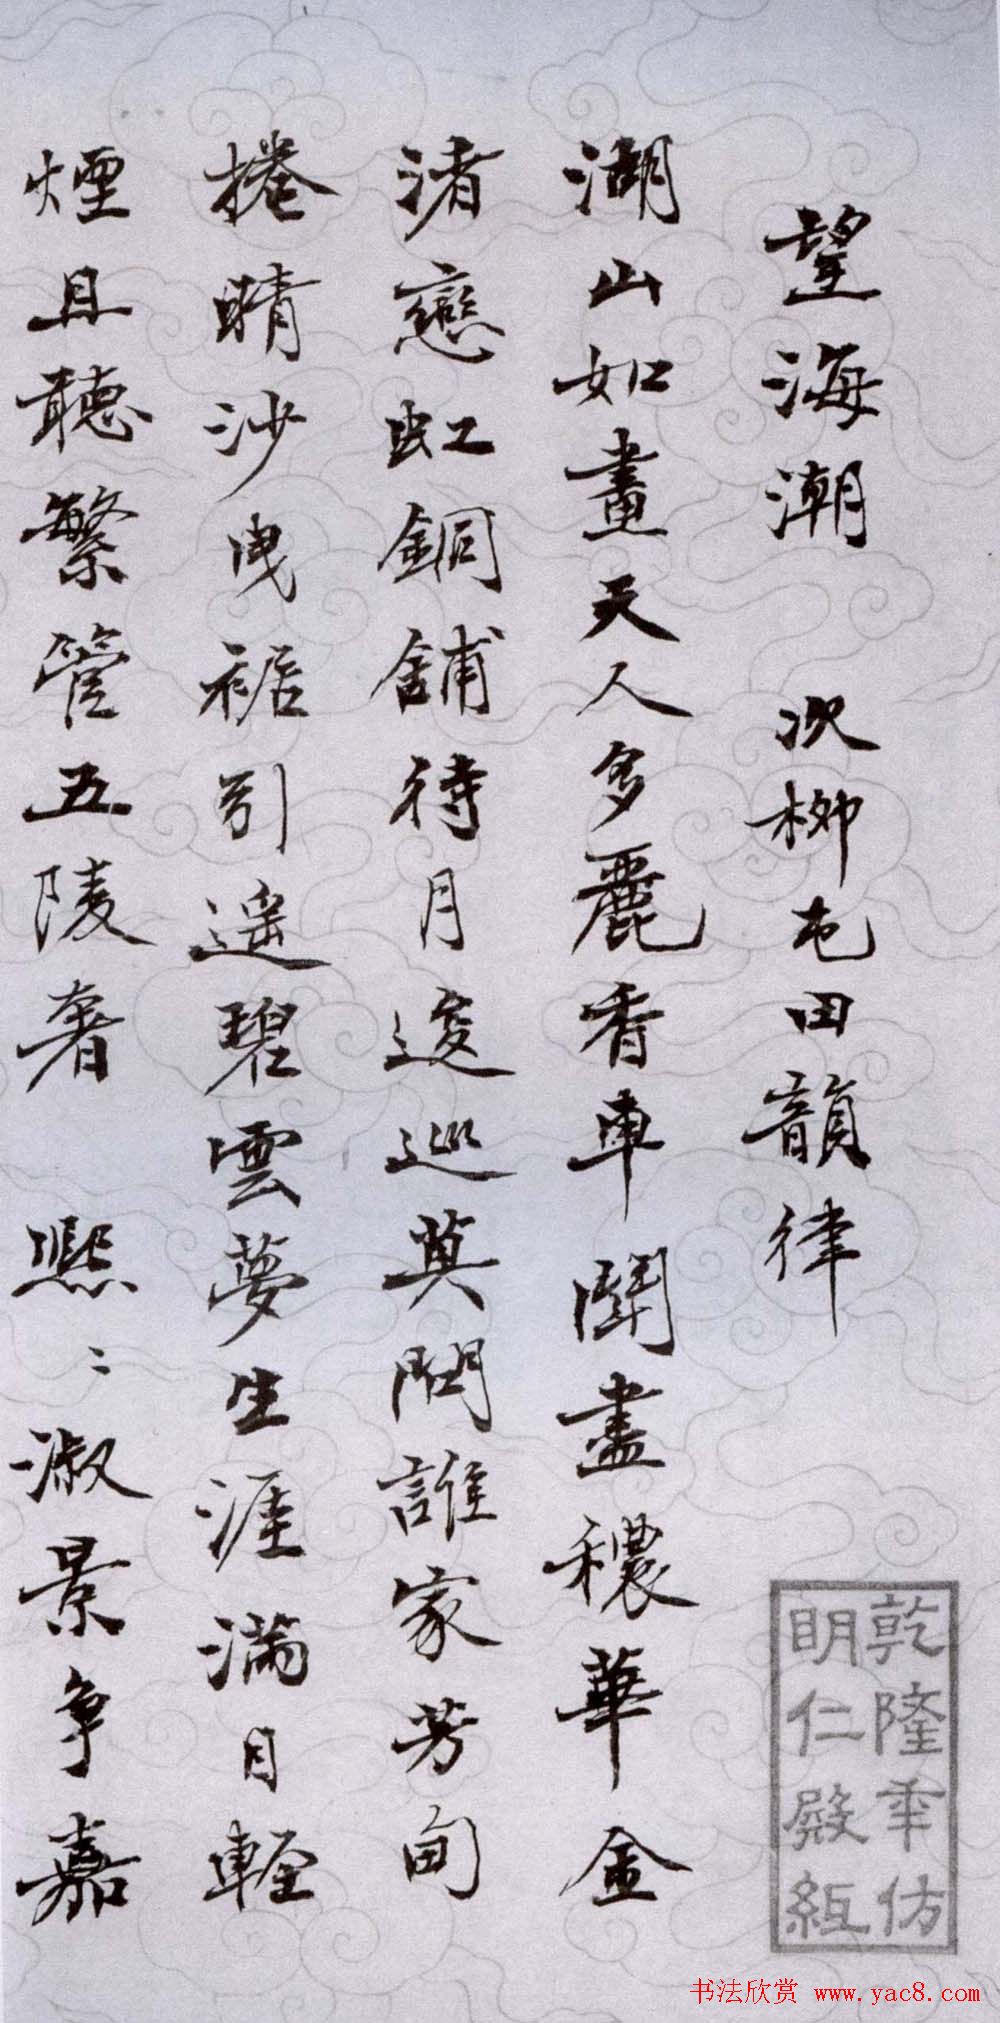 望海潮 次柳屯田韻律
湖山如畫天人多麗香車鬪盡穠華金
渚戀虹銅鋪待月逡巡莫問誰家芳甸
捲晴沙曳裾引遥碧雲夢生涯滿目輕
煙且聽繁管五陵奢 熙〻淑景争嘉
乾隆年仿
明仁殿紙
书法欣赏 www.yac8.com